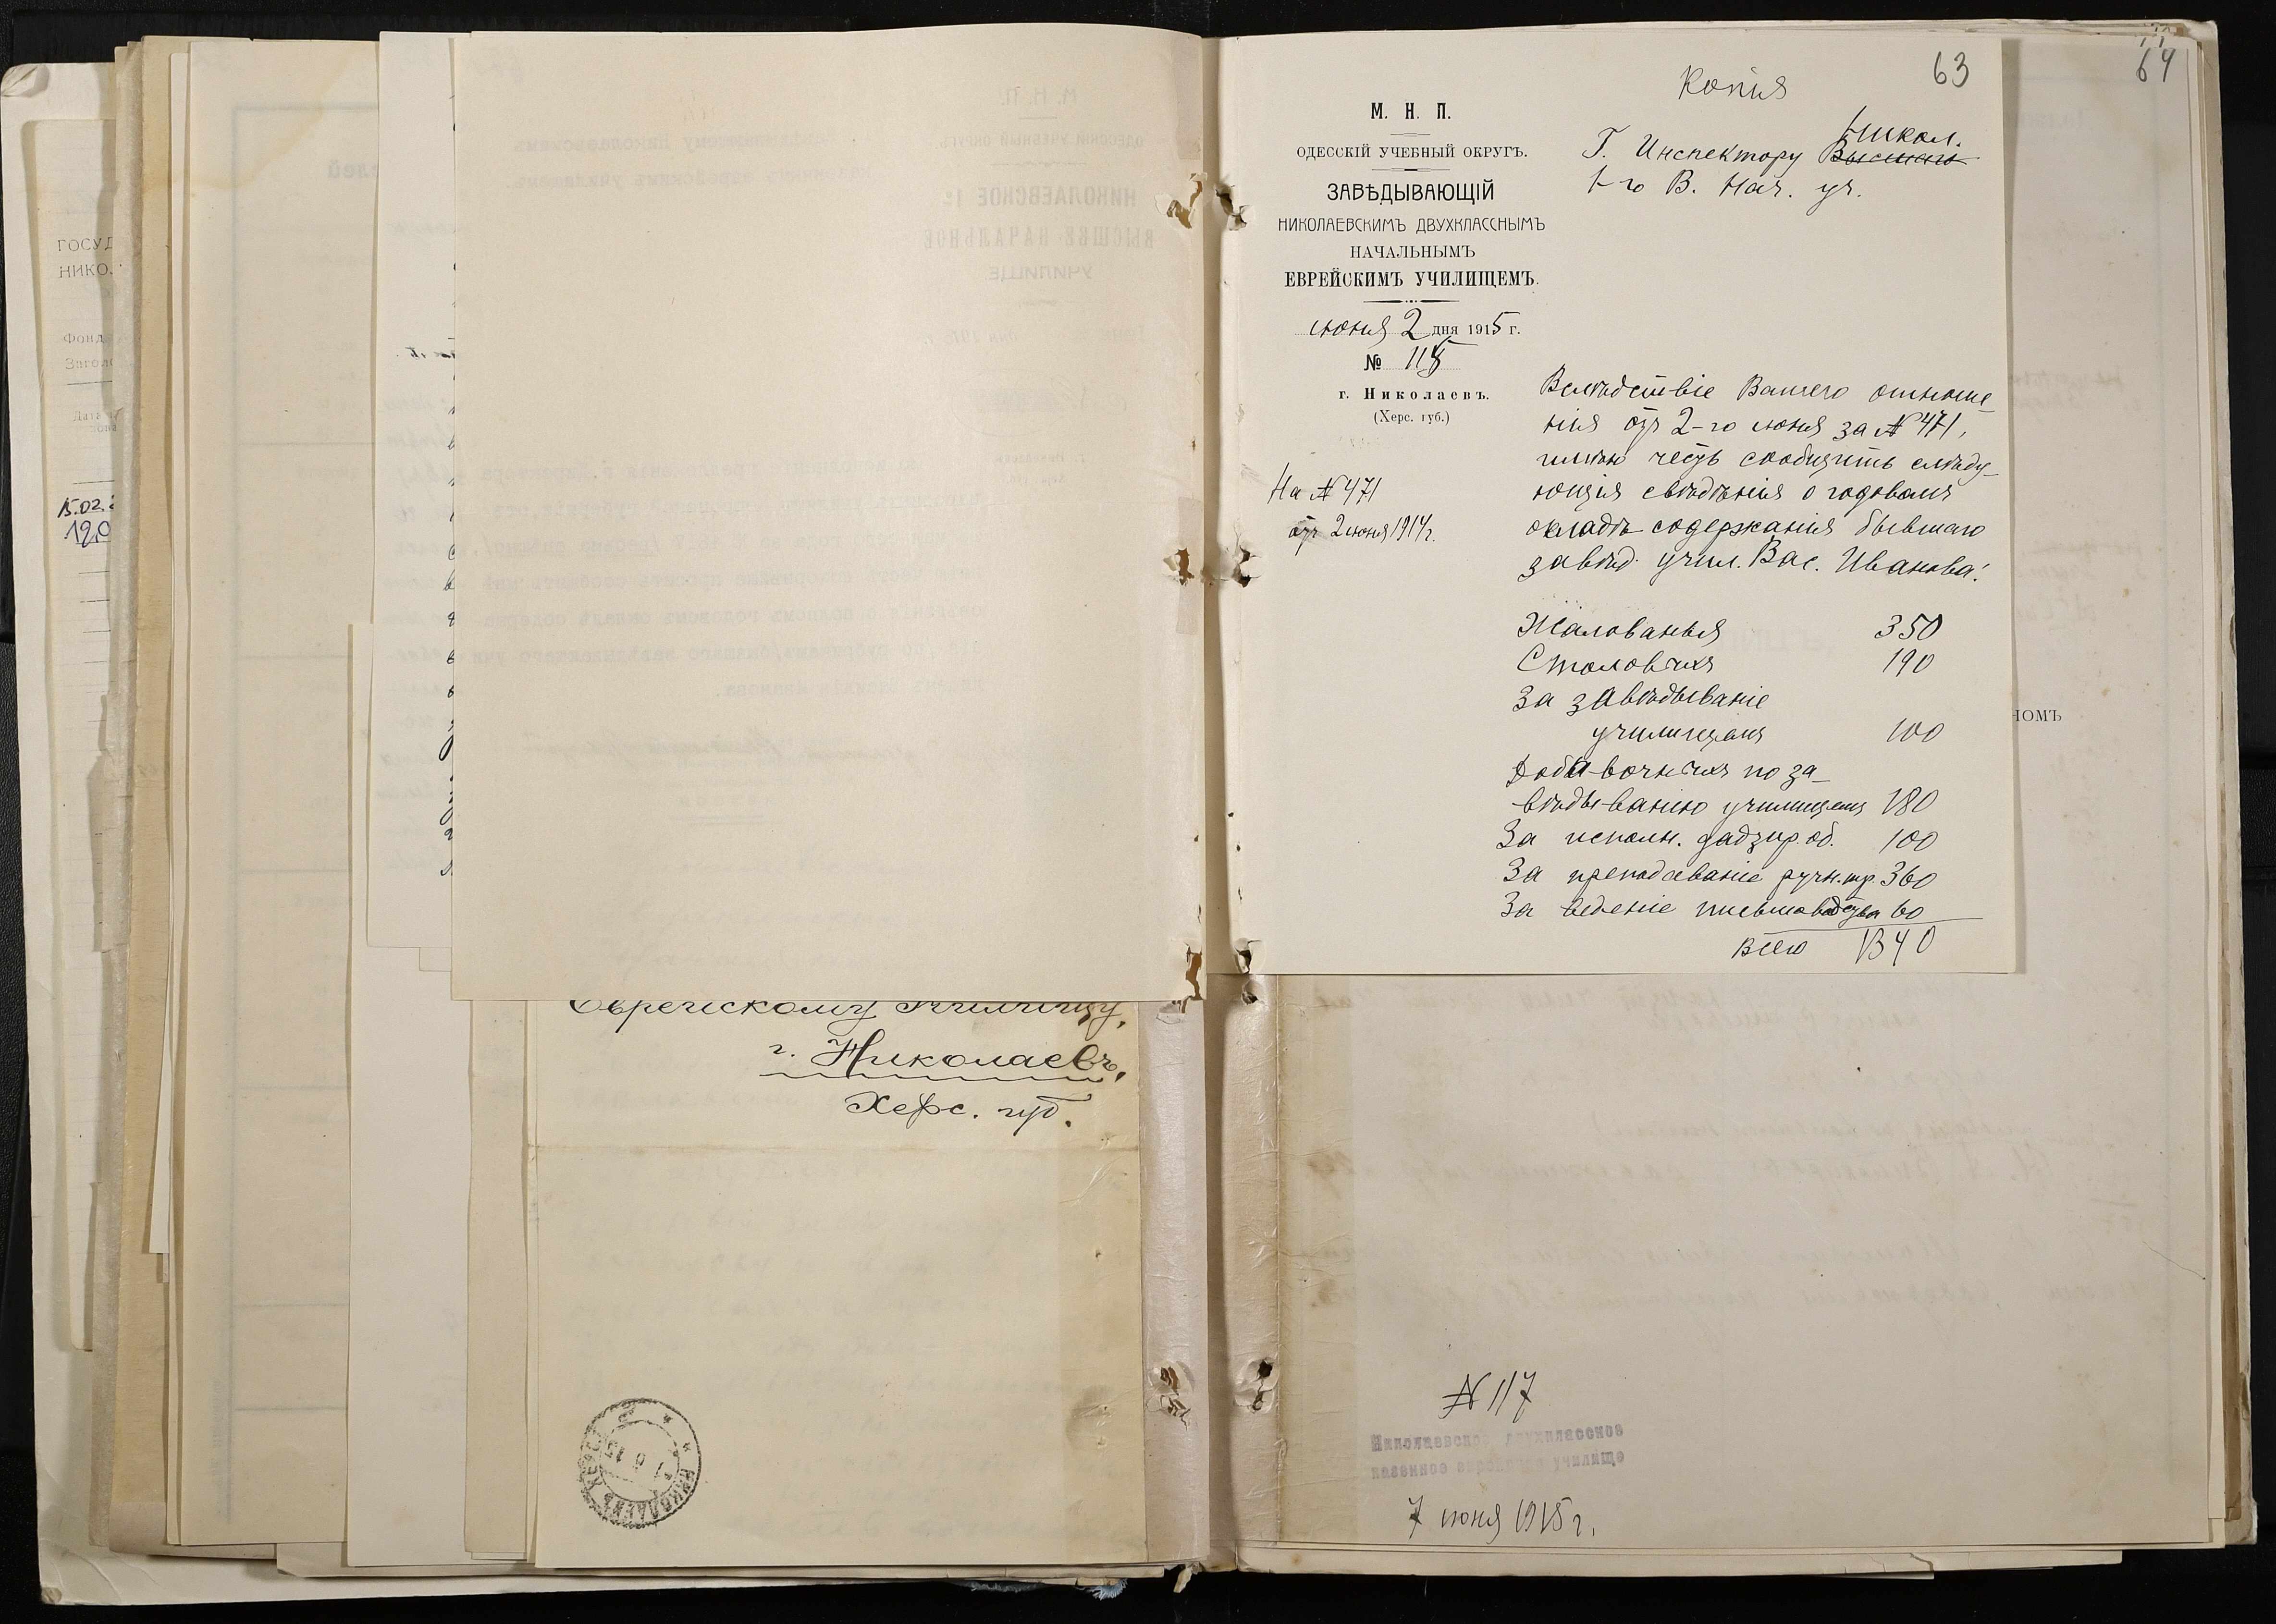 ГОСУД
НИКО
Фонд
Загол
Дата
15.02.2
12.0
Еврейскому Училищу,
г. Николаевъ,
Херс. губ.
НИКОЛАЕВЪ ХЕРС.
63
64
Копия
М. Н. П.
ОДЕССКІЙ УЧЕБНЫЙ ОКРУГЪ.
ЗАВѢДЫВАЮЩІЙ
НИКОЛАЕВСКИМЪ ДВУХКЛАССНЫМЪ
НАЧАЛЬНЫМЪ
ЕВРЕЙСКИМЪ УЧИЛИЩЕМЪ.
июня 2 дня 1915 г.
№ 115
г. Николаевъ.
(Херс. губ.)
На № 471
отъ 2 июня 1914 г.
Никол.
Г. Инспектору Высшаго
1-го В. Нач. уч.
Вслѣдствіе Вашего отноше-
нія отъ 2-го июня за № 471,
имѣю честь сообщить слѣду-
ющія свѣдѣнія о годовомъ
окладѣ содержанія бывшаго
завѣд. учил. Вас. Иванова:
Жалованья 350
Столовыхъ 190
За завѣдываніе
училищемъ 100
Добавочныхъ по за-
вѣдыванію училищемъ 180
За исполн. надзир. об. 100
За преподаваніе ручн. тр. 360
За веденіе письмоводства 60
Всего 1340
НОМЪ
№ 117
Николаевское двухклассное
казенное еврейское училище
7 июня 1915 г.